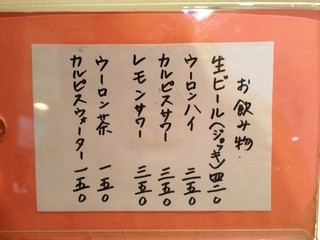 お飲み物
生ビール(ジョッキ)四二〇
ウーロンハイ 三五〇
カルピスサワー 三五〇
レモンサワー 三五〇
ウーロン茶 一五〇
カルピスウォーター 一五〇